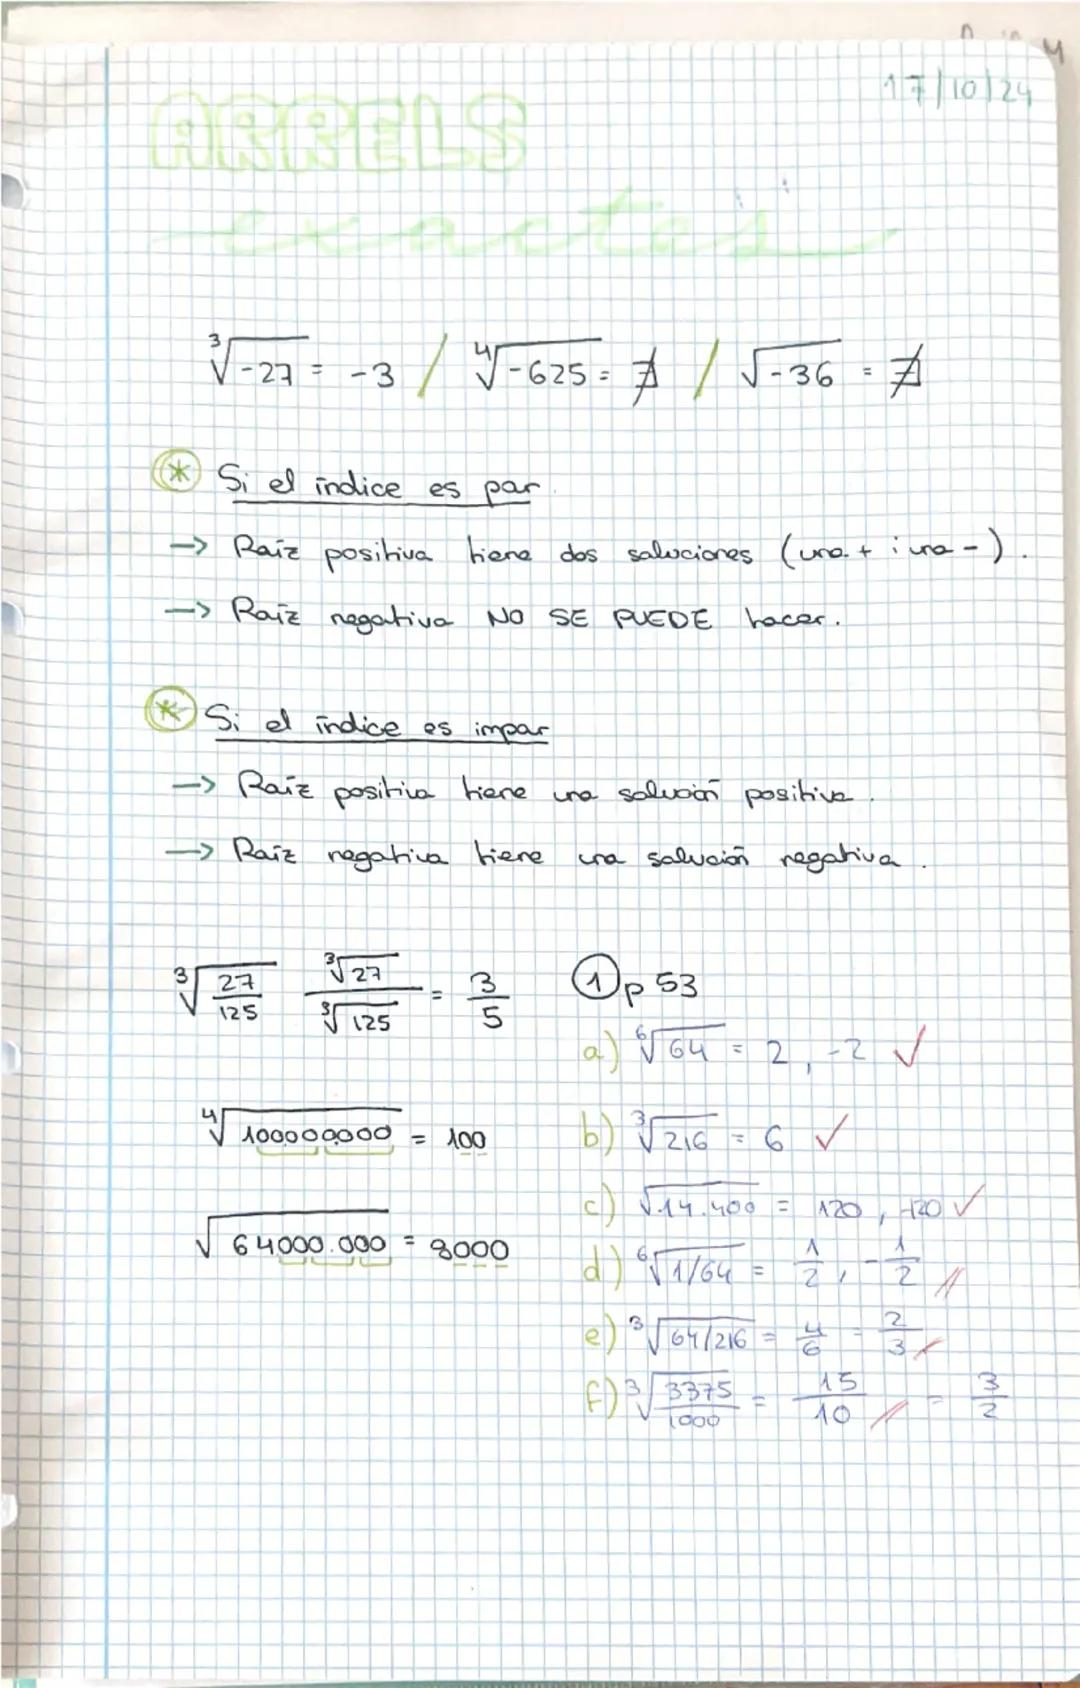 17/10/24
ARRELS
exactas
∛-27 = -3 / ∜-625 = ∄ / √-36 = ∄
* Si el índice es par.
→ Raíz positiva tiene dos soluciones (una + i una -).
→ Raíz negativa NO SE PUEDE hacer.
* Si el índice es impar
→ Raíz positiva tiene una solución positiva.
→ Raíz negativa tiene una solución negativa.
∛27/125 ∛27/∛125 = 3/5
∜100000000 = 100
√64000.000 = 8000
① p 53
a) ⁶√64 = 2, -2 ✓
b) ∛216 = 6 ✓
c) √14.400 = 120, -120 ✓
d) ⁶√1/64 = 1/2, -1/2
e) ∛64/216 = 4/6 = 2/3
f) ∛3375/1000 = 15/10 = 3/2